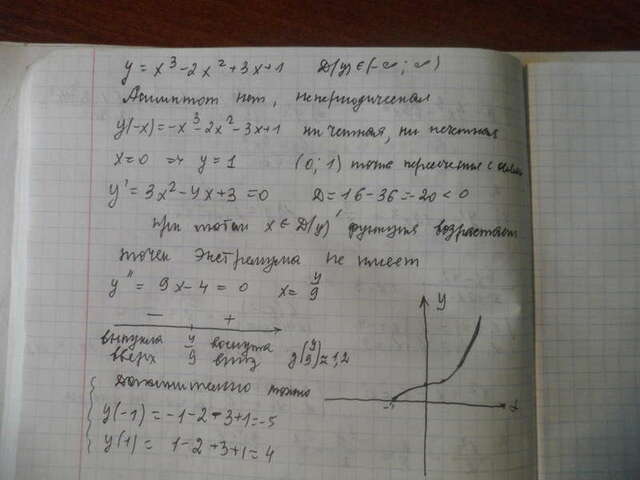 y = x³ - 2x² + 3x + 1 D(y) ∈ (-∞; ∞)
Асимптот нет, непериодическая
y(-x) = -x³ - 2x² - 3x + 1 ни четная, ни нечетная
x = 0 ⇒ y = 1 (0; 1) точка пересечения с осями
y' = 3x² - 4x + 3 = 0 D = 16 - 36 = -20 < 0
при любом x ∈ D(y) функция возрастает
точек экстремума не имеет
y'' = 9x - 4 = 0 x = 4/9
y
- +
выпукла 4/9 вогнута
вверх вниз y(4/9) ≈ 1,2
Дополнительно можно
-5 x
y(-1) = -1 - 2 - 3 + 1 = -5
y(1) = 1 - 2 + 3 + 1 = 4